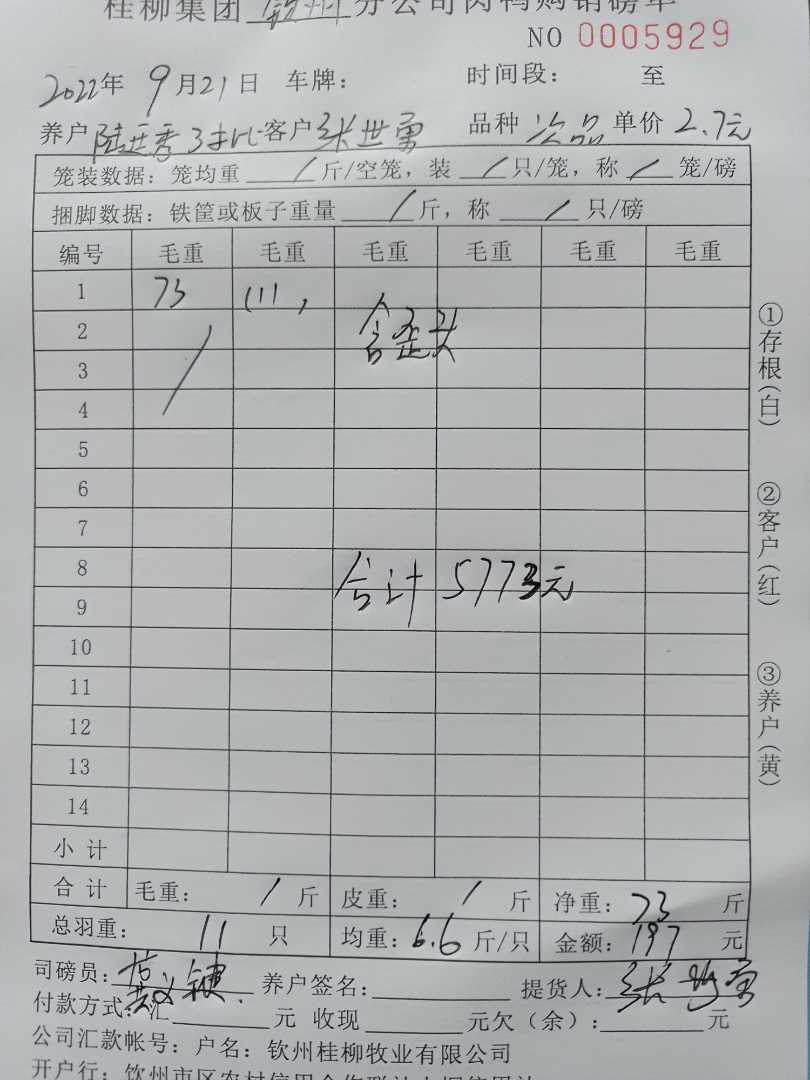 桂柳集团 钦州 分公司肉鸭购销磅单
NO 0005929
2022年 9月21日 车牌： 时间段： 至
养户 陆廷秀3批 客户 张世勇 品种 次品 单价 2.7元
笼装数据：笼均重 / 斤/空笼，装 / 只/笼，称 / 笼/磅
捆脚数据：铁筐或板子重量 / 斤，称 / 只/磅
编号 毛重 毛重 毛重 毛重 毛重 毛重
1 73 (11)
2 含歪头
3
4
5
6
7
8 合计 5773元
9
10
11
12
13
14
小计
合计 毛重： / 斤 皮重： / 斤 净重：73 斤
总羽重： 11 只 均重：6.6 斤/只 金额：197 元
司磅员： 养户签名： 提货人：张世勇
付款方式：汇 元 收现 元欠（余）： 元
公司汇款帐号：户名：钦州桂柳牧业有限公司
开户行：钦州市区农村信用合作联社
①存根(白)
②客户(红)
③养户(黄)